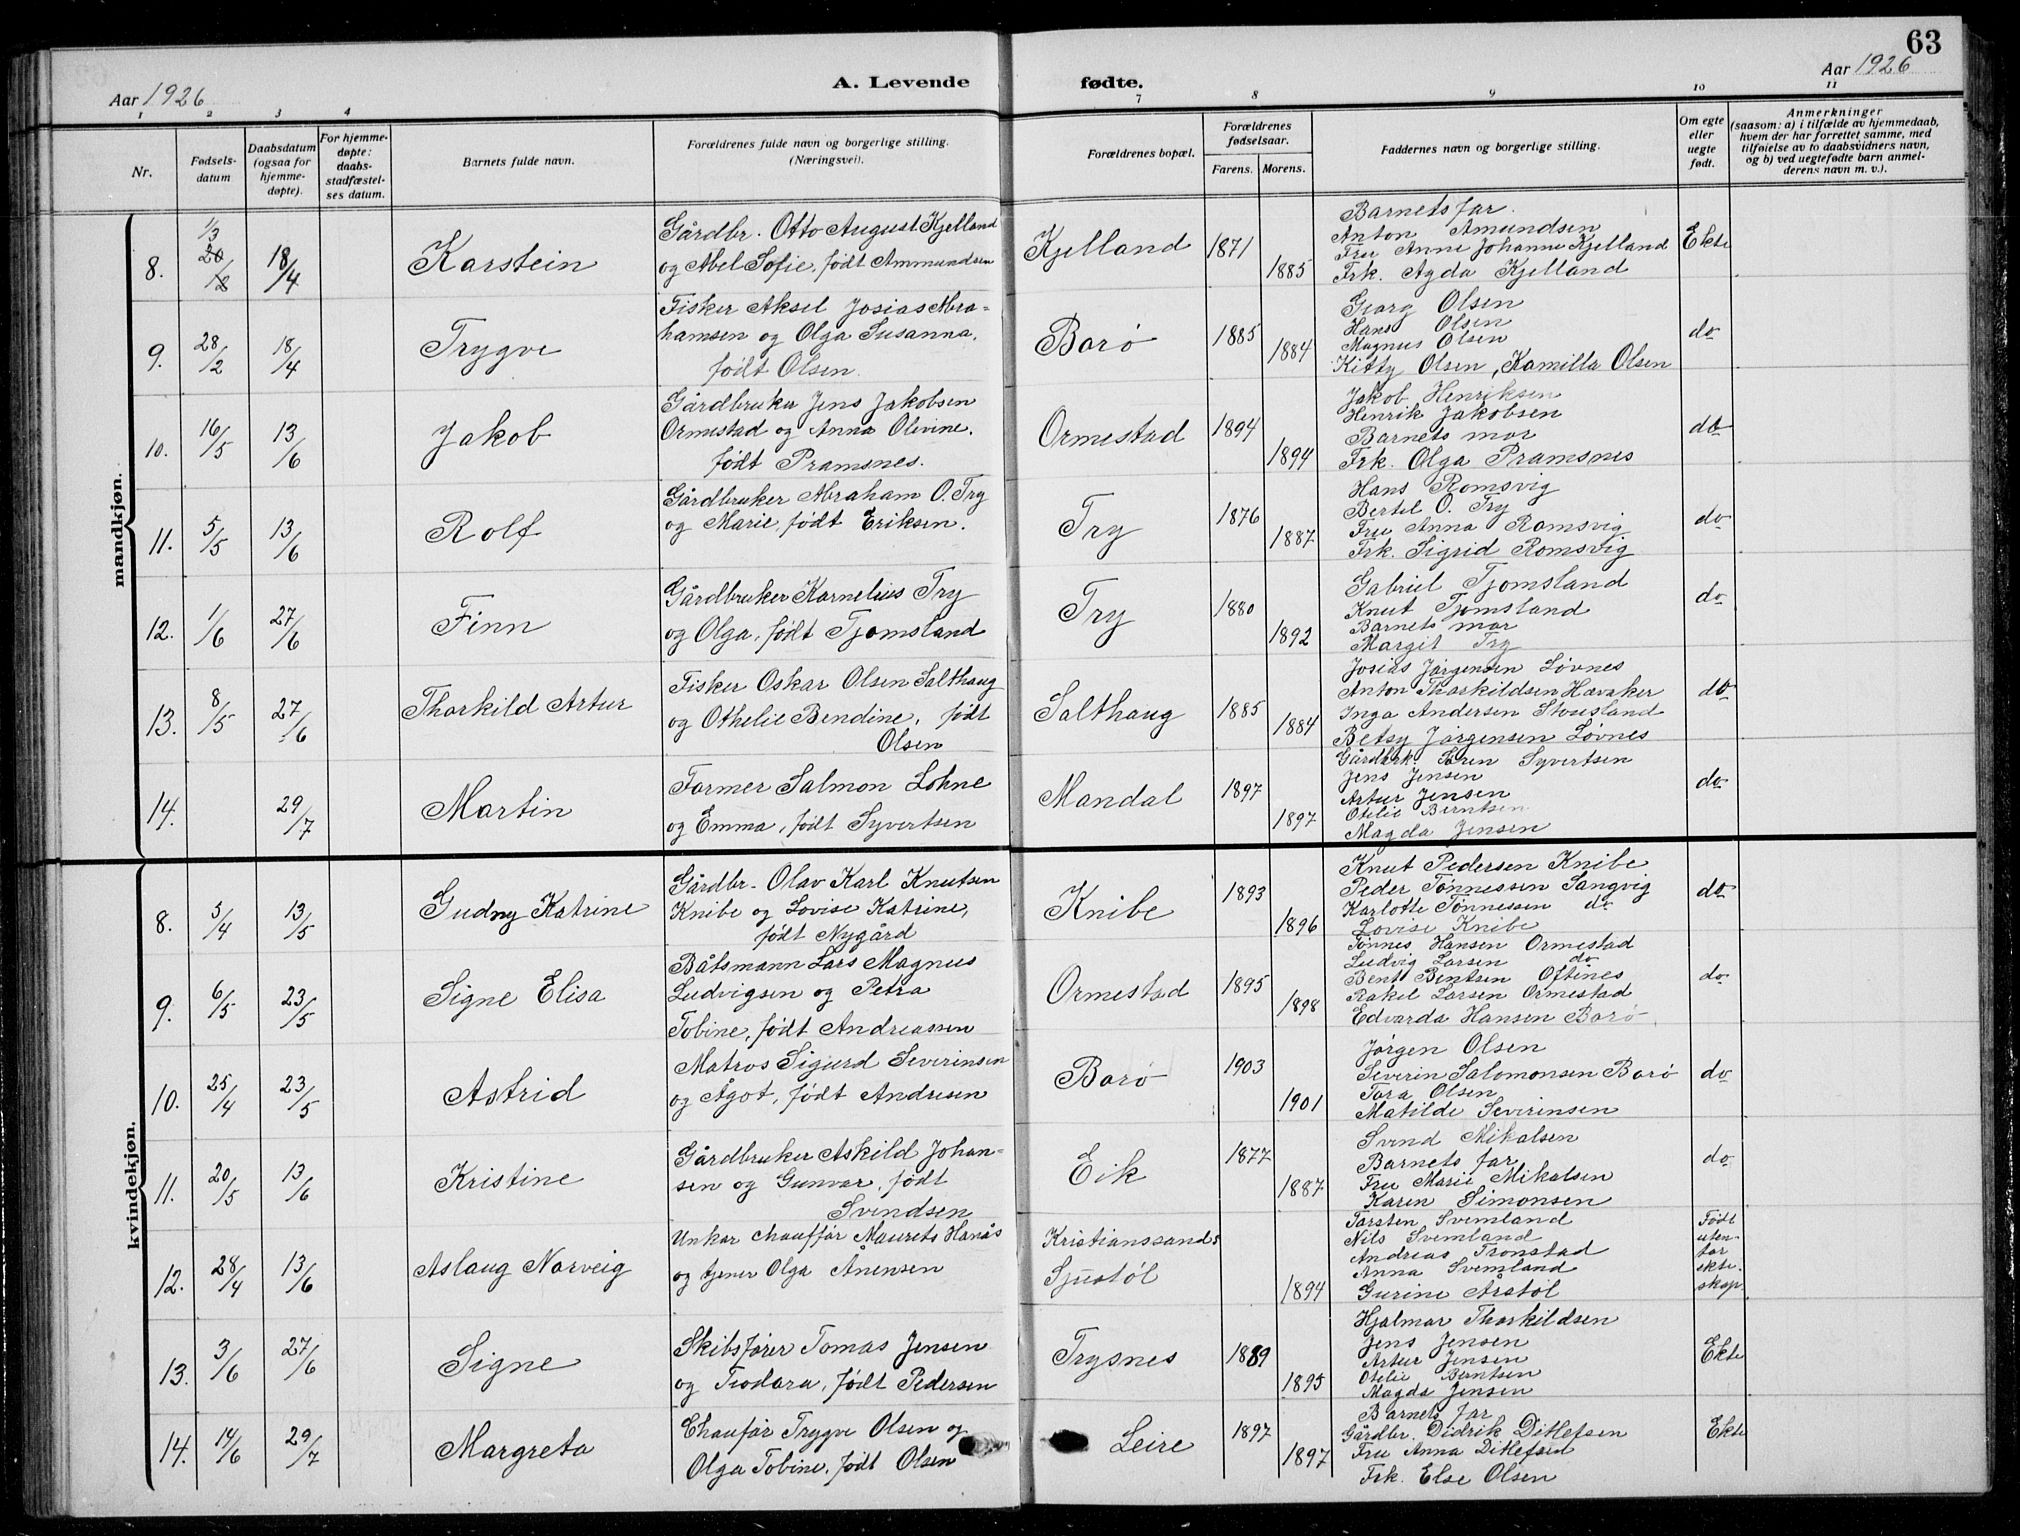 63
Aar 1926
A. Levende fødte.
Aar 1926
1 2 3 4 7 8 9 10 11
Nr.
Fødsels-
datum
Daabsdatum
(ogsaa for
hjemme-
døpte).
For hjemme-
døpte:
daabs-
stadfæstel-
ses datum.
Barnets fulde navn.
Forældrenes fulde navn og borgerlige stilling.
(Næringsvei).
Forældrenes bopæl.
Forældrenes
fødselsaar.
Farens. Morens.
Faddernes navn og borgerlige stilling.
Om egte
eller
uegte
født.
Anmerkninger
(saasom: a) i tilfælde av hjemmedaab,
hvem der har forrettet samme, med
tilføielse av to daabsvidners navn,
og b) ved uegtefødte barn anmel-
derens navn m. v.).
mandkjøn.
8. 1/3 20/12 18/4 Karstein
Gårdbr. Otto August Kjelland
og Abel Sofie, født Ammundsen
Kjelland 1871 1885
Barnets far.
Anton Amundsen
Fru Anne Johanne Kjelland
Frk. Agda Kjelland
Ekte
9. 28/2 18/4 Trygve
Fisker Aksel Josias Abra-
hamsen og Olga Susanna,
født Olsen.
Borø 1885 1884
Georg Olsen
Hans Olsen
Magnus Olsen
Kitty Olsen, Kamilla Olsen
do
10. 16/5 13/6 Jakob
Gårdbruker Jens Jakobsen
Ormestad og Anna Olivine,
født Pramsnes.
Ormestad 1894 1894
Jakob Henriksen
Henrik Jakobsen
Barnets mor
Frk. Olga Pramsnes
do
11. 5/5 13/6 Rolf
Gårdbruker Abraham O. Try
og Marie, født Eriksen.
Try 1876 1887
Hans Romsvig
Bertel O. Try
Fru Anna Romsvig
Frk. Sigrid Romsvig
do
12. 1/6 27/6 Finn
Gårdbruker Kornelius Try
og Olga, født Tjomsland
Try 1880 1892
Gabriel Tjomsland
Knut Tjomsland
Barnets mor
Margit Try
do
13. 8/5 27/6 Thorkild Artur
Fisker Oskar Olsen Salthaug
og Othelie Bendine, født
Olsen
Salthaug 1885 1884
Josias Jørgensen Løvnes
Anton Thorkildsen Havaker
Inga Andersen Stousland
Betsy Jørgensen Løvnes
do
14. 29/7 Martin
Farmer Salmon Lohne
og Emma, født Syvertsen
Mandal 1897 1897
Gårdbrk. Søren Syvertsen
Jens Jensen
Artur Jensen
Otelie Berntsen
Magda Jensen
do
kvindekjøn.
8. 5/4 13/5 Gudny Katrine
Gårdbr. Olav Karl Knutsen
Knibe og Lovise Katrine,
født Nygård
Knibe 1893 1896
Knut Pedersen Knibe
Peder Tønnessen Sangvig
Karlotte Tønnessen do
Lovise Knibe
do
9. 6/5 23/5 Signe Elisa
Båtsmann Lars Magnus
Ludvigsen og Petra
Tobine, født Andreassen
Ormestad 1895 1898
Tønnes Hansen Ormestad
Ludvig Larsen do
Bent Bentsen Oftenes
Rakel Larsen Ormestad
Edvarda Hansen Borø
do
10. 25/4 23/5 Astrid
Matros Sigurd Severinsen
og Ågot, født Andresen
Borø 1903 1901
Jørgen Olsen
Severin Salomonsen Borø
Tora Olsen
Matilde Severinsen
do
11. 20/5 13/6 Kristine
Gårdbruker Askild Johan-
sen og Gunvor, født
Svendsen
Eik 1877 1887
Svend Mikalsen
Barnets far
Fru Marie Mikalsen
Karen Simonsen
do
12. 28/4 13/6 Aslaug Norveig
Unkar chauffør Maurets Hanås
og tjener Olga Ånensen
Kristianssands
Sjustøl 1894
Torsten Svemland
Nils Svemland
Andreas Tronstad
Anna Svemland
Gurine Årstøl
Født
uten-
for
ekte-
skap.
13. 3/6 27/6 Signe
Skibsfører Tomas Jensen
og Teodora, født Pedersen
Trysnes 1889 1895
Hjalmar Thorkildsen
Jens Jensen
Artur Jensen
Otelie Berntsen
Magda Jensen
Ekte
14. 14/6 29/7 Margreta
Chaufør Trygve Olsen og
Olga Tobine, født Olsen
Leire 1897 1897
Barnets far
Gårdbr. Didrik Ditlefsen
Fru Anna Ditlefsen
Frk. Else Olsen
Ekte